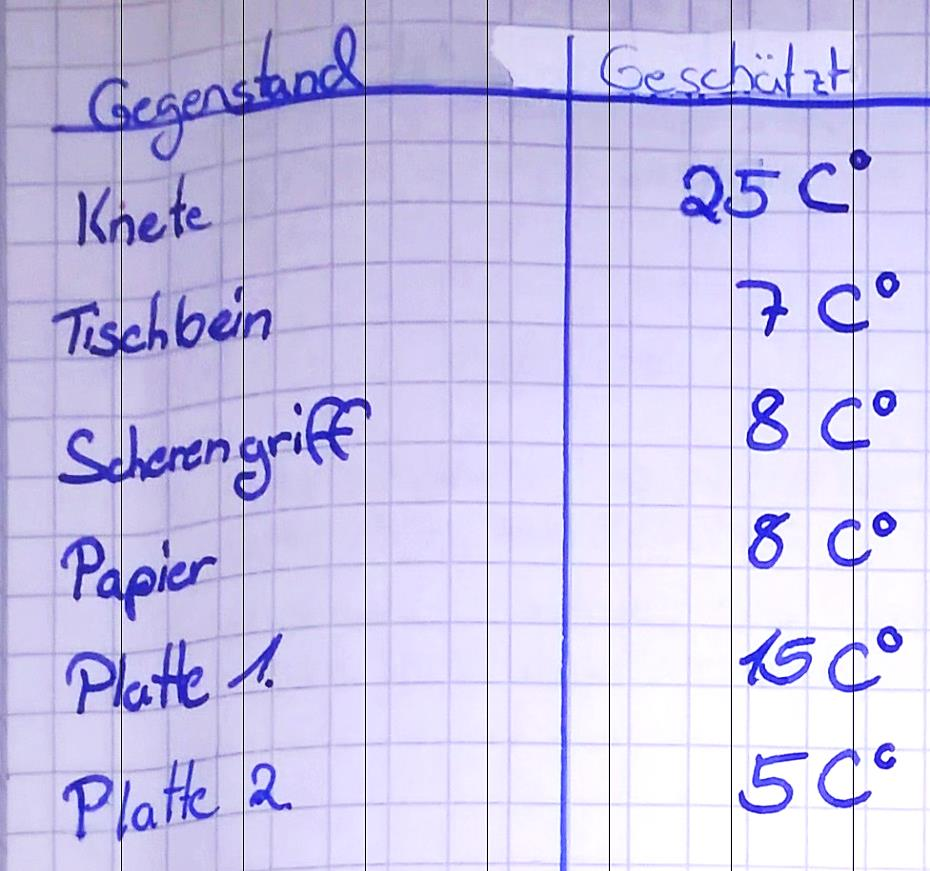 Gegenstand Geschätzt
Knete 25 C°
Tischbein 7 C°
Scherengriff 8 C°
Papier 8 C°
Platte 1. 15 C°
Platte 2. 5 C°